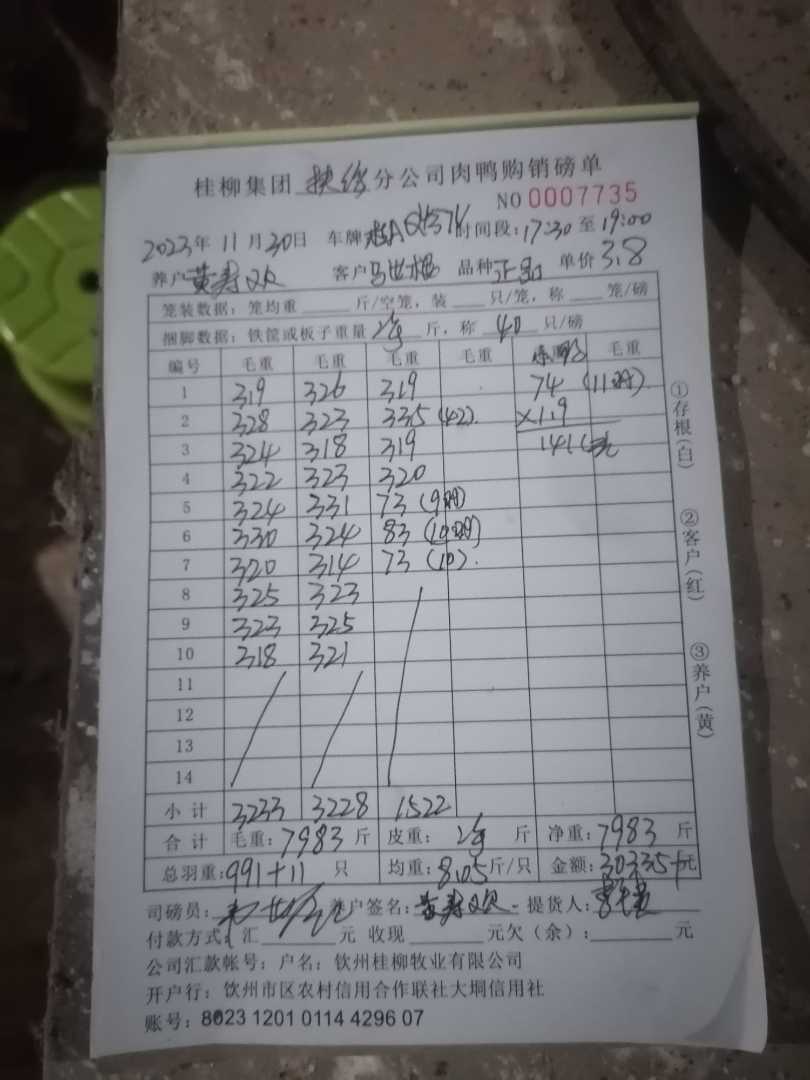 桂柳集团 扶绥 分公司肉鸭购销磅单
NO 0007735
2023年 11月 30日 车牌 时间段:17:30 至 19:00
养户 黄寿欢 客户 马世 品种 正品 单价 3.8
笼装数据:笼均重 斤/空笼,装 只/笼,称 笼/磅
捆脚数据:铁筐或板子重量 斤,称 40 只/磅
编号 毛重 毛重 毛重 毛重 毛重
1 319 326 319 74 (11只)
2 328 323 335 (42) ×1.9
3 324 318 319 141
4 322 323 320
5 324 331 73 (9只)
6 330 324 83 (10只)
7 320 314 73 (10)
8 325 323
9 323 325
10 318 321
11
12
13
14
小计 3233 3228 1522
合计 毛重:7983 斤 皮重: 斤 净重:7983 斤
总羽重:991+11 只 均重:8.05 斤/只 金额:30335 元
司磅员: 养户签名:黄寿欢 提货人:
付款方式:汇 元 收现 元欠(余): 元
公司汇款帐号:户名:钦州桂柳牧业有限公司
开户行:钦州市区农村信用合作联社大垌信用社
账号:8023 1201 0114 4296 07
①存根(白)
②客户(红)
③养户(黄)